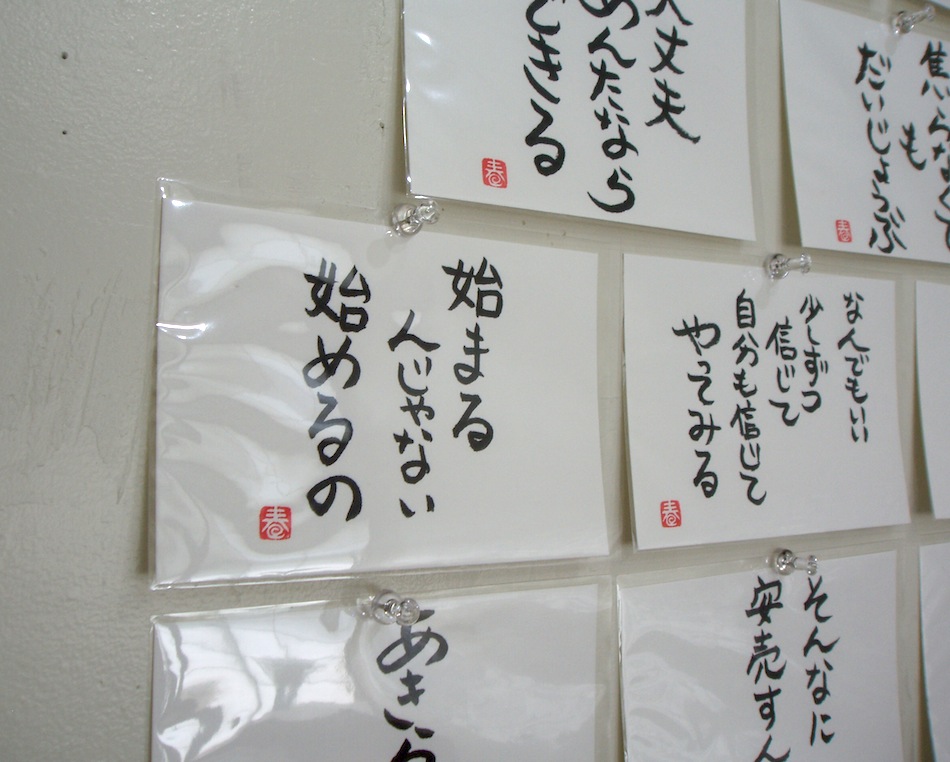 大丈夫
あんたなら
できる
春
焦らなくて
も
だいじょうぶ
春
始まる
んじゃない
始めるの
春
なんでもいい
少しずつ
信じて
自分も信じて
やってみる
春
あきら
そんなに
安売すん